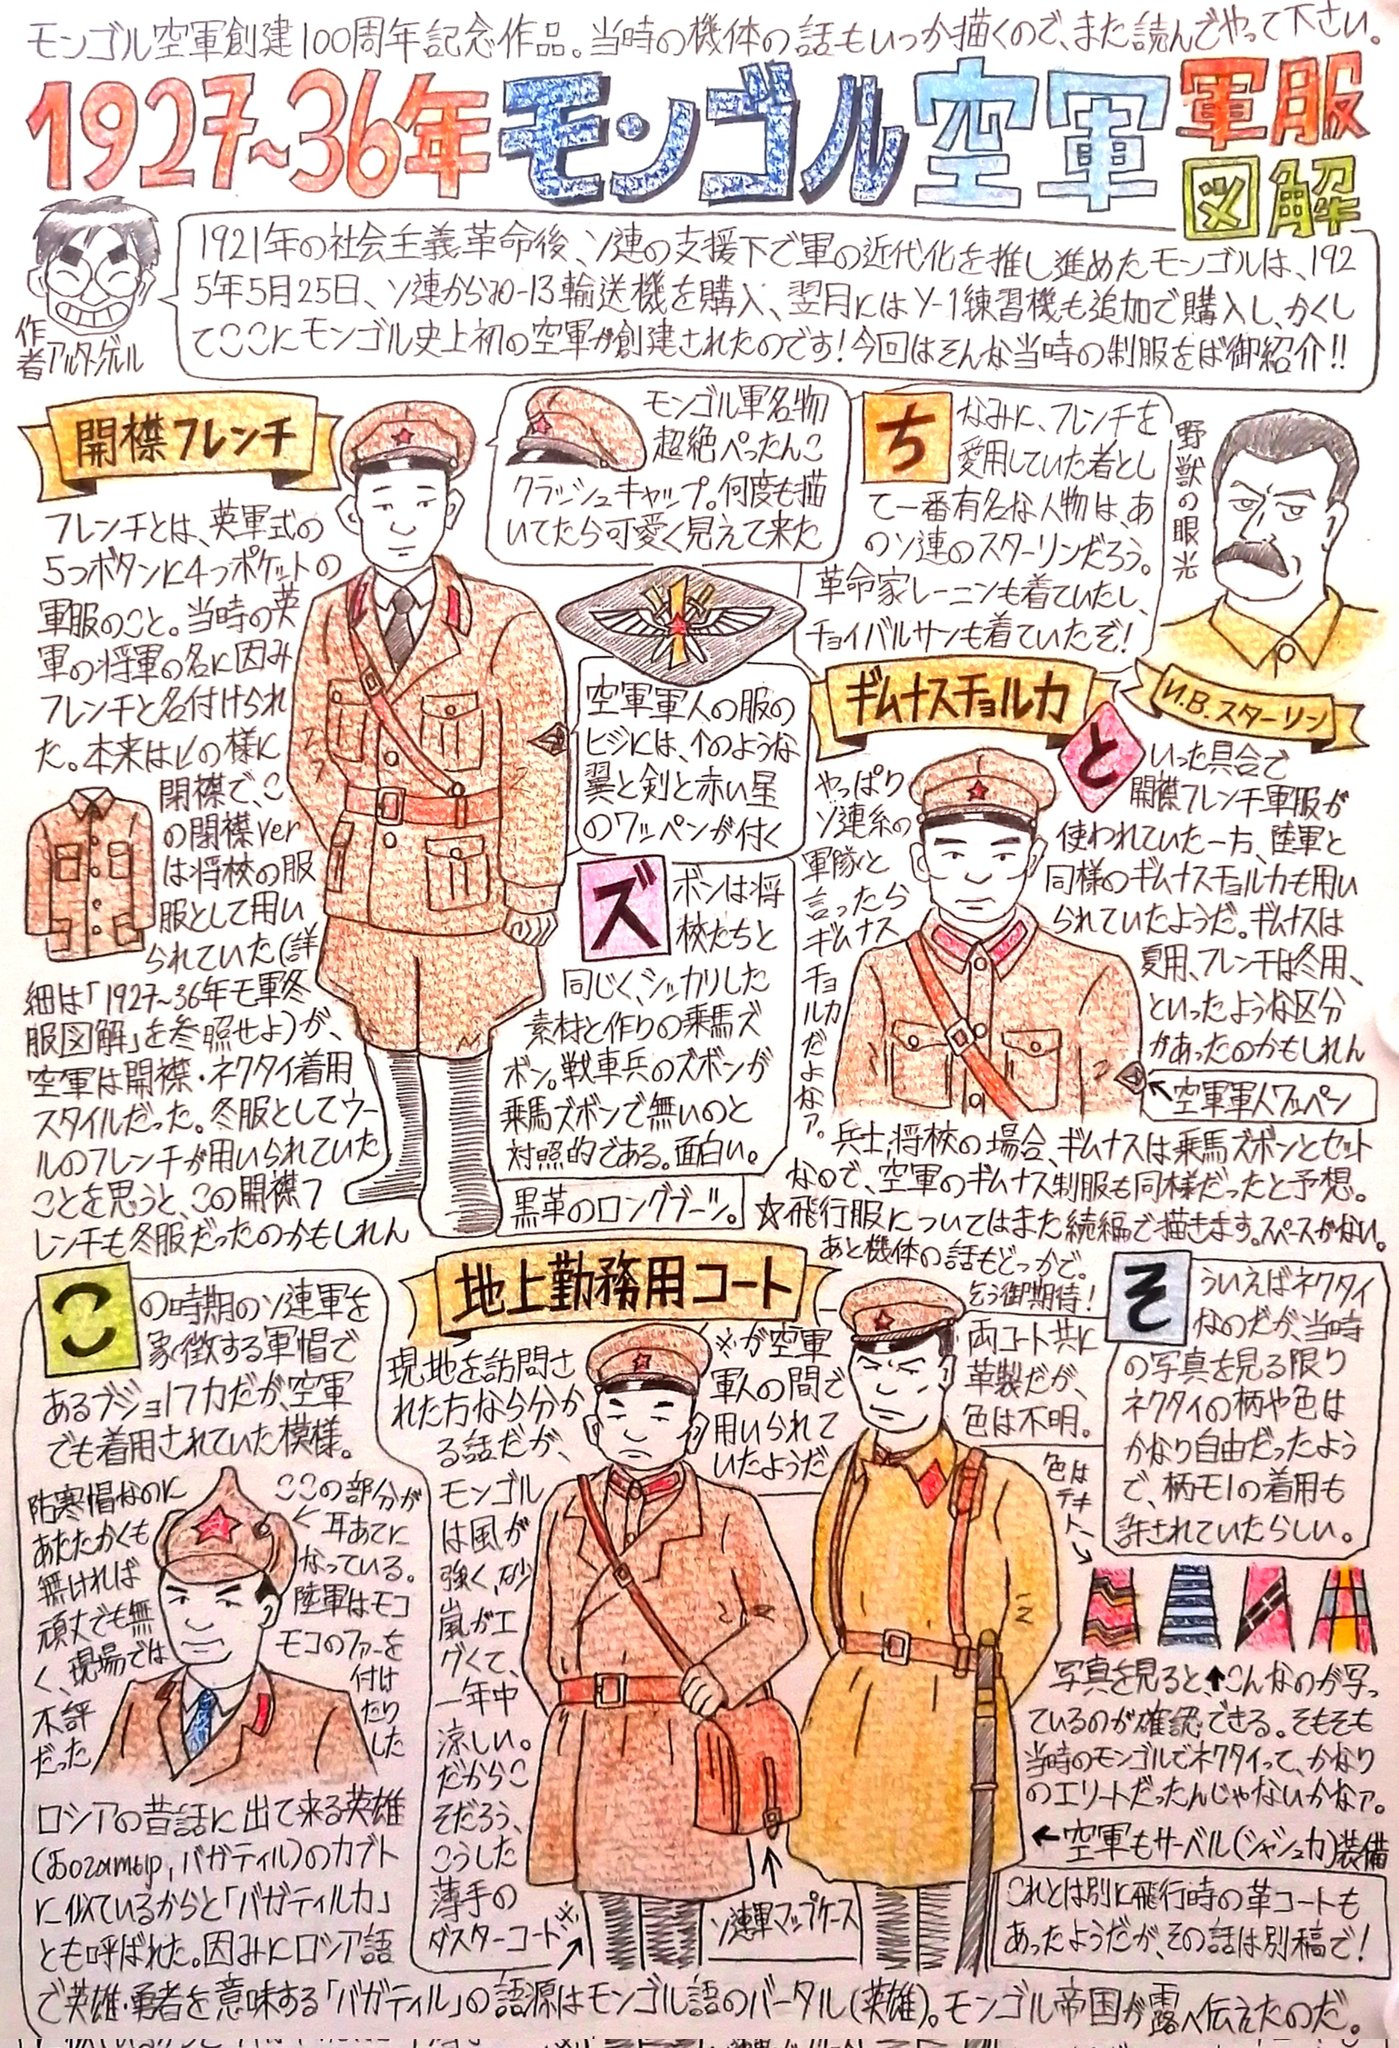 モンゴル空軍創建100周年記念作品。当時の機体の話もいつか描くので、また読んでやって下さい。
1927~36年モンゴル空軍軍服図解
作者アルタンゲルル
1921年の社会主義革命後、ソ連の支援下で軍の近代化を推し進めたモンゴルは、192
5年5月25日、ソ連からЮ-13輸送機を購入、翌月にはУ-1練習機も追加で購入し、かくし
てここにモンゴル史上初の空軍が創建されたのです!今回はそんな当時の制服をば御紹介!!
開襟フレンチ
フレンチとは、英軍式の
5つボタンに4つポケットの
軍服のこと。当時の英
軍の将軍の名に因み
フレンチと名付けられ
た。本来は↙の様に
閉襟で、こ
の閉襟ver
は将校の服
服として用い
られていた(詳
細は「1927~36年モ軍冬
服図解」を参照せよ)が、
空軍は開襟・ネクタイ着用
スタイルだった。冬服としてウー
ルのフレンチが用いられていた
ことを思うと、この開襟フ
レンチも冬服だったのかもしれん
モンゴル軍名物
超絶ぺったんこ
クラッシュキャップ。何度も描
いてたら可愛く見えて来た
空軍軍人の服の
ヒジには、↑のような
翼と剣と赤い星
のワッペンが付く
ズボンは将
校たちと
同じく、シッカリした
素材と作りの乗馬ズ
ボン。戦車兵のズボンが
乗馬ズボンで無いのと
対照的である。面白い。
黒革のロングブーツ。
ちなみに、フレンチを
愛用していた者とし
て一番有名な人物は、あ
のソ連のスターリンだろう。
革命家レーニンも着ていたし、
チョイバルサンも着ていたぞ!
野獣の眼光
И.В.スターリン
ギムナスチョルカ
やっぱり
ソ連系の
軍隊と
言ったら
ギムナス
チョ
ルカ
だよ
なァ。
といった具合で
開襟フレンチ軍服が
使われていた一方、陸軍と
同様のギムナスチョルカも用い
られていたようだ。ギムナスは
夏用、フレンチは冬用、
といったような区分
があったのかもしれん
←空軍軍人ワッペン
兵士、将校の場合、ギムナスは乗馬ズボンとセット
なので、空軍のギムナス制服も同様だったと予想。
☆飛行服についてはまた続編で描きます。スペースがない。
あと機体の話もどっかで。
乞う御期待!
この時期のソ連軍を
象徴する軍帽で
あるブジョノフカだが、空軍
でも着用されていた模様。
防寒帽なのに
あたたかくも
無ければ
頑丈でも無
く、現場では
不評
だった
ここの部分が
耳あてに
なっている。
陸軍はモコ
モコのファーを
付け
たり
した
ロシアの昔話に出て来る英雄
(богатыр, バガティル)のカブト
に似ているからと「バガティルカ」
とも呼ばれた。因みにロシア語
で英雄・勇者を意味する「バガティル」の語源はモンゴル語のバータル(英雄)。モンゴル帝国が露へ伝えたのだ。
地上勤務用コート
現地を訪問さ
れた方なら分か
る話だが、
モンゴル
は風が
強く、砂
嵐がエ
グくて、
一年中
涼しい。
だからこ
そだろう、
こうした
薄手の
ダスターコート※
※が空軍
軍人の間で
用いられて
いたようだ
両コート共に
革製だが、
色は不明。
ソ連軍マップケース
そういえばネクタイ
なのだが、当時
の写真を見る限り
ネクタイの柄や色は
かなり自由だったよう
で、柄モノの着用も
許されていたらしい。
色はテキトー→
写真を見ると、↑こんなのが写っ
ているのが確認できる。そもそも
当時のモンゴルでネクタイって、かなり
のエリートだったんじゃないかなァ。
←空軍もサーベル(シャシュカ)装備
これとは別に飛行時の革コートも
あったようだが、その話は別稿で!